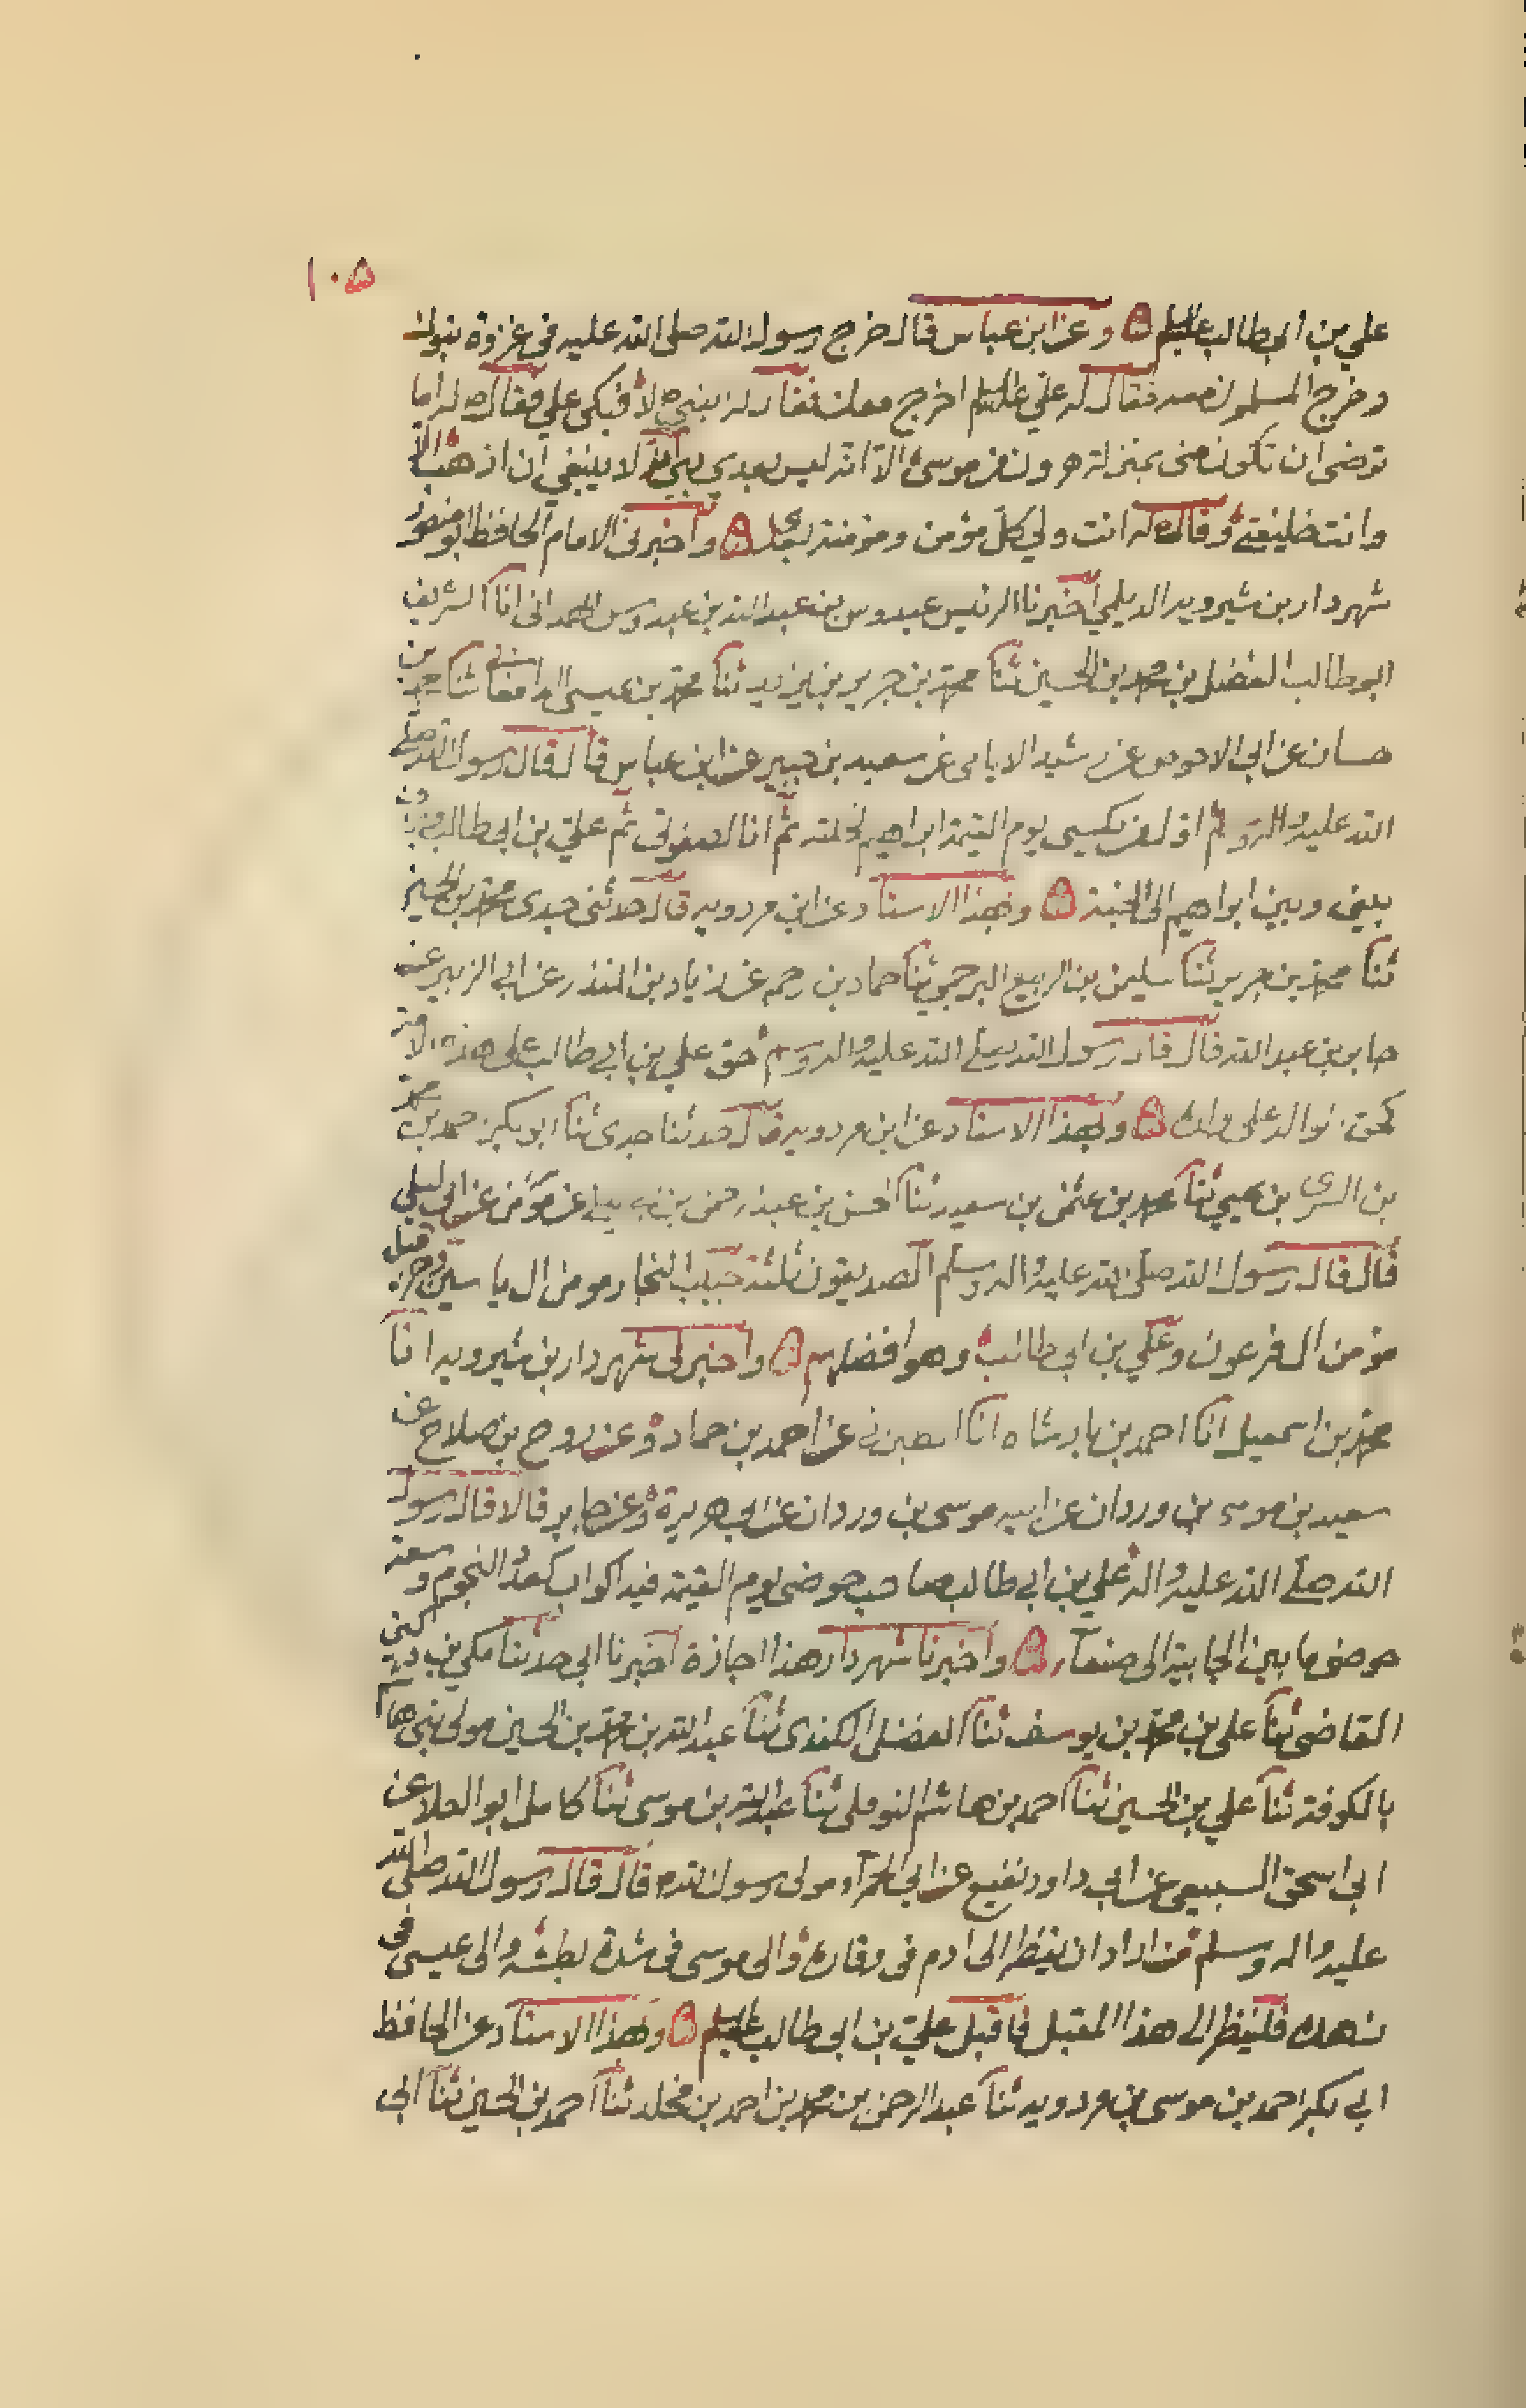 ١٠٥
علي بن ابي طالب عليه السلم ۞ وعن ابن عباس قال خرج رسول الله صلى الله عليه في غزوة تبوك
وخرج المسلمون معه فقال له علي عليه السلم اخرج معك فقال له النبي ص لا فبكى علي فقال ص له اما
ترضى ان تكون مني بمنزلة هرون من موسى الا انه ليس بعدي نبي لا ينبغي ان اذهب الا
وانت خليفتي وقال ص له انت ولي كل مؤمن ومؤمنة بعدي ۞ واخبرني الامام الحافظ ابو منصور
شهردار بن شيرويه الديلمي اخبرنا الرئيس عبدوس بن عبد الله بن عبدوس الهمداني انا الشريف
ابو طالب المفضل بن محمد بن الحسين ثنا محمد بن جرير بن يزيد ثنا محمد بن عيسى الدامغاني ثنا
حسان عن ابي الاحوص عن الايامي عن سعيد بن جبير عن ابن عباس قال قال رسول الله صلى
الله عليه واله وسلم اول من يكسى يوم القيمة ابراهيم لخلته ثم انا لصفوتي ثم علي بن ابي طالب يزف
بيني وبين ابراهيم الى الجنة ۞ وبهذا الاسناد عن ابن مردويه قال حدثني جدي محمد بن الحسين
ثنا محمد بن جرير ثنا سليمن بن الربيع البرجمي ثنا حماد بن رحم عن زياد بن المنذر عن ابي الزبير عن
جابر بن عبد الله قال قال رسول الله صلى الله عليه واله وسلم حق علي بن ابي طالب على هذه الامة
كحق الوالد على ولده ۞ وبهذا الاسناد عن ابن مردويه قال حدثنا جدي ثنا ابو بكر احمد بن محمد
بن السري بن يحيى ثنا محمد بن عثمن بن سعيد ثنا الحسن بن عبد الرحمن بن ابي ليلى عن ابي ليلى
قال قال رسول الله صلى الله عليه واله وسلم الصديقون ثلثة حبيب النجار مومن ال ياسين وحزقيل
مؤمن ال فرعون وعلي بن ابي طالب وهو افضلهم ۞ واخبرني شهردار بن شيرويه انا
محمد بن اسمعيل انا احمد بن انا عن احمد بن حماد وعن روح بن صلاح عن
سعيد بن موسى بن وردان عن ابيه موسى بن وردان عن ابي هريرة وعن جابر قالا قال رسول
الله صلى الله عليه واله علي بن ابي طالب صاحب حوضي يوم القيمة فيه اكواب كعدد النجوم وسعة
حوضي ما بين الجابية الى صنعاء ۞ واخبرنا شهردار هذا اجازة اخبرنا ابي حدثنا مكي بن
القاضي ثنا علي بن محمد بن يوسف ثنا الفضل الكندي ثنا عبد الله بن محمد بن الحسين مولى بني هاشم
بالكوفة ثنا علي بن الحسين ثنا احمد بن هاشم النوفلي ثنا عبيد الله بن موسى ثنا كامل ابو العلا عن
ابي اسحق السبيعي عن ابي داود نفيع عن ابي الحمراء مولى رسول الله ص قال قال رسول الله صلى الله
عليه واله وسلم من اراد ان ينظر الى ادم في وقاره والى موسى في شدة بطشه والى عيسى في
زهده فلينظر الى هذا المقبل فاقبل علي بن ابي طالب عليه السلم ۞ وبهذا الاسناد عن الحافظ
ابي بكر احمد بن موسى بن مردويه ثنا عبد الرحمن بن محمد بن احمد بن مخلد ثنا احمد بن الحسين ثنا ابي